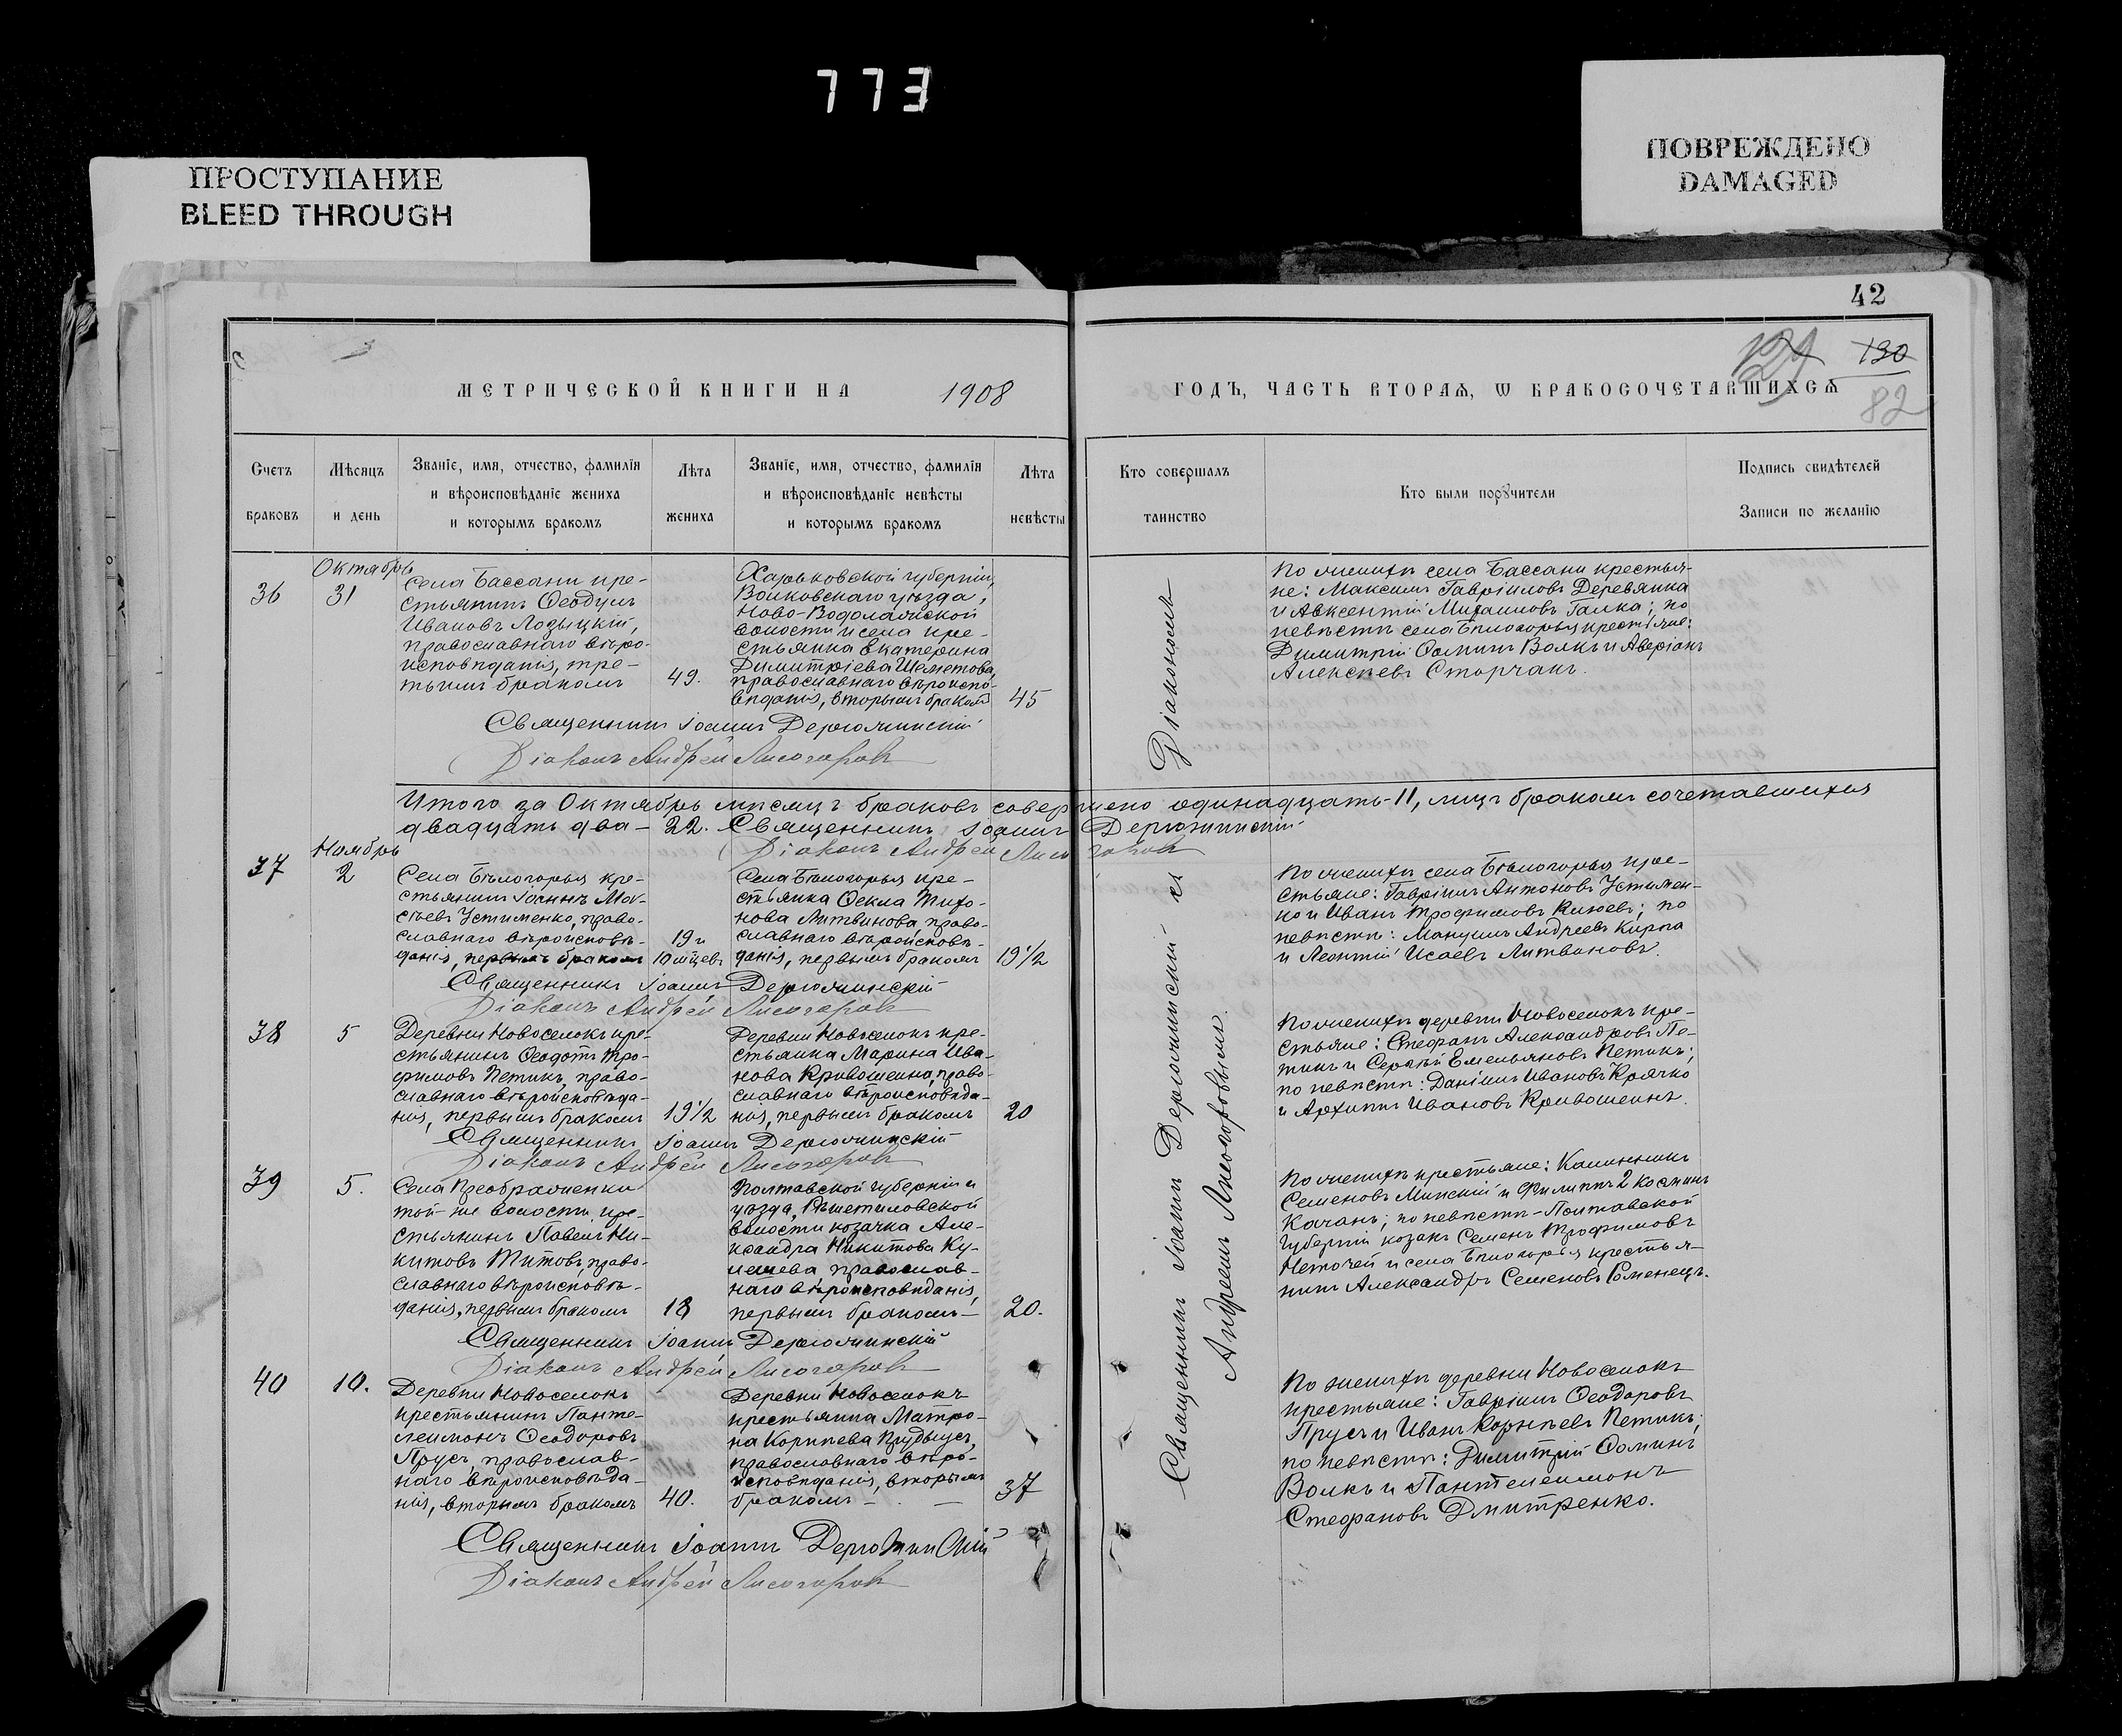 773
ПРОСТУПАНИЕ
BLEED THROUGH
ПОВРЕЖДЕНО
DAMAGED
42
129 130
82
МЕТРИЧЕСКОЙ КНИГИ НА 1908 ГОДЪ, ЧАСТЬ ВТОРАѦ, Ѡ БРАКОСОЧЕТАВШИХСѦ
Счетъ
браковъ
Мѣсяцъ
и день
Званіе, имя, отчество, фамилія
и вѣроисповѣданіе жениха
и которымъ бракомъ
Лѣта
жениха
Званіе, имя, отчество, фамилія
и вѣроисповѣданіе невѣсты
и которымъ бракомъ
Лѣта
невѣсты
Кто совершалъ
таинство
Кто были поручители
Подпись свидѣтелей
Записи по желанію
36
Октябрь
31
Села Бассани кре-
стьянинъ Ѳеодулъ
Ивановъ Лозыцкій,
православнаго вѣро-
исповѣданія, тре-
тьимъ бракомъ
49.
Харьковской губерніи,
Волковскаго уѣзда,
Ново-Водолажской
волости и села кре-
стьянка Екатерина
Димитріева Шеметова,
православнаго вѣроиспо-
вѣданія, вторымъ бракомъ
45
По женихѣ села Бассани крестья-
не: Максимъ Гавріиловъ Деревянка
и Авксентій Михаиловъ Галка; по
невѣстѣ села Бѣлогорья крестьяне:
Димитрій Ѳоминъ Волкъ и Аверіанъ
Алексѣевъ Сторчакъ.
Священникъ Іоаннъ Держинскій
Діаконъ Андрей Лисогоровъ
Итого за Октябрь мѣсяцъ браковъ совершено одинадцать-11, лицъ бракомъ сочетавшихся
двадцать два - 22. Священникъ Іоаннъ Держинскій
Діаконъ Андрей Лисогоровъ
37
Ноябрь
2
Села Бѣлогорья кре-
стьянинъ Іоаннъ
Устименко, право-
славнаго вѣроисповѣ-
данія, первымъ бракомъ
19 и
10 мцевъ
Села Бѣлогорья кре-
стьянка Ѳекла Тихо-
нова Литвинова, право-
славнаго вѣроисповѣ-
данія, первымъ бракомъ
19 1/2
По женихѣ села Бѣлогорья кре-
стьяне: Гавріилъ Антоновъ Устимен-
ко и Иванъ Трофимовъ Князевъ; по
невѣстѣ: Мануилъ Андреевъ Кирпа
и Леонтій Исаевъ Литвиновъ.
Священникъ Іоаннъ Держинскій
Діаконъ Андрей Лисогоровъ
38
5
Деревни Новоселокъ кре-
стьянинъ Ѳеодотъ Тро-
фимовъ Петикъ, право-
славнаго вѣроисповѣда-
нія, первымъ бракомъ
19 1/2
Деревни Новоселокъ кре-
стьянка Марина Ива-
нова Кривошеина, право-
славнаго вѣроисповѣда-
нія, первымъ бракомъ
20
По женихѣ деревни Новоселокъ кре-
стьяне: Стефанъ Александровъ Пе-
тикъ и Сергѣй Емельяновъ Петикъ;
по невѣстѣ: Даніилъ Ивановъ Крячко
и Архипъ Ивановъ Кривошеинъ.
Священникъ Іоаннъ Держинскій
Діаконъ Андрей Лисогоровъ
39
5.
Села Преображенки
той-же волости кре-
стьянинъ Павелъ Ни-
китовъ Титовъ, право-
славнаго вѣроисповѣ-
данія, первымъ бракомъ
18
Полтавской губерніи и
уѣзда, Рѣшетиловской
волости козачка Але-
ксандра Никитова Ку-
лешева православ-
наго вѣроисповѣданія,
первымъ бракомъ -
20.
По женихѣ крестьяне: Калинникъ
Семеновъ Минскій и Филиппъ 2 Косминъ
Качанъ; по невѣстѣ - Полтавской
губерніи козакъ Семенъ Трофимовъ
Неточей и села Бѣлогорья крестья-
нинъ Александръ Семеновъ Роменецъ.
Священникъ Іоаннъ Держинскій
Діаконъ Андрей Лисогоровъ
40
10.
Деревни Новоселокъ
крестьянинъ Панте-
леимонъ Ѳеодоровъ
Прусъ, православ-
наго вѣроисповѣда-
нія, вторымъ бракомъ
40.
Деревни Новоселокъ
крестьянка Матро-
на Корнѣева
православнаго вѣро-
исповѣданія, вторымъ
бракомъ -
37
По женихѣ деревни Новоселокъ
крестьяне: Гавріилъ Ѳеодоровъ
Прусъ и Иванъ Корнѣевъ Петикъ;
по невѣстѣ: Димитрій Ѳоминъ
Волкъ и Пантелеимонъ
Стефановъ Дмитренко.
Священникъ Іоаннъ Держинскій
Діаконъ Андрей Лисогоровъ
Священникъ Іоаннъ Держинскій съ Діакономъ
Андреемъ Лисогоровымъ.